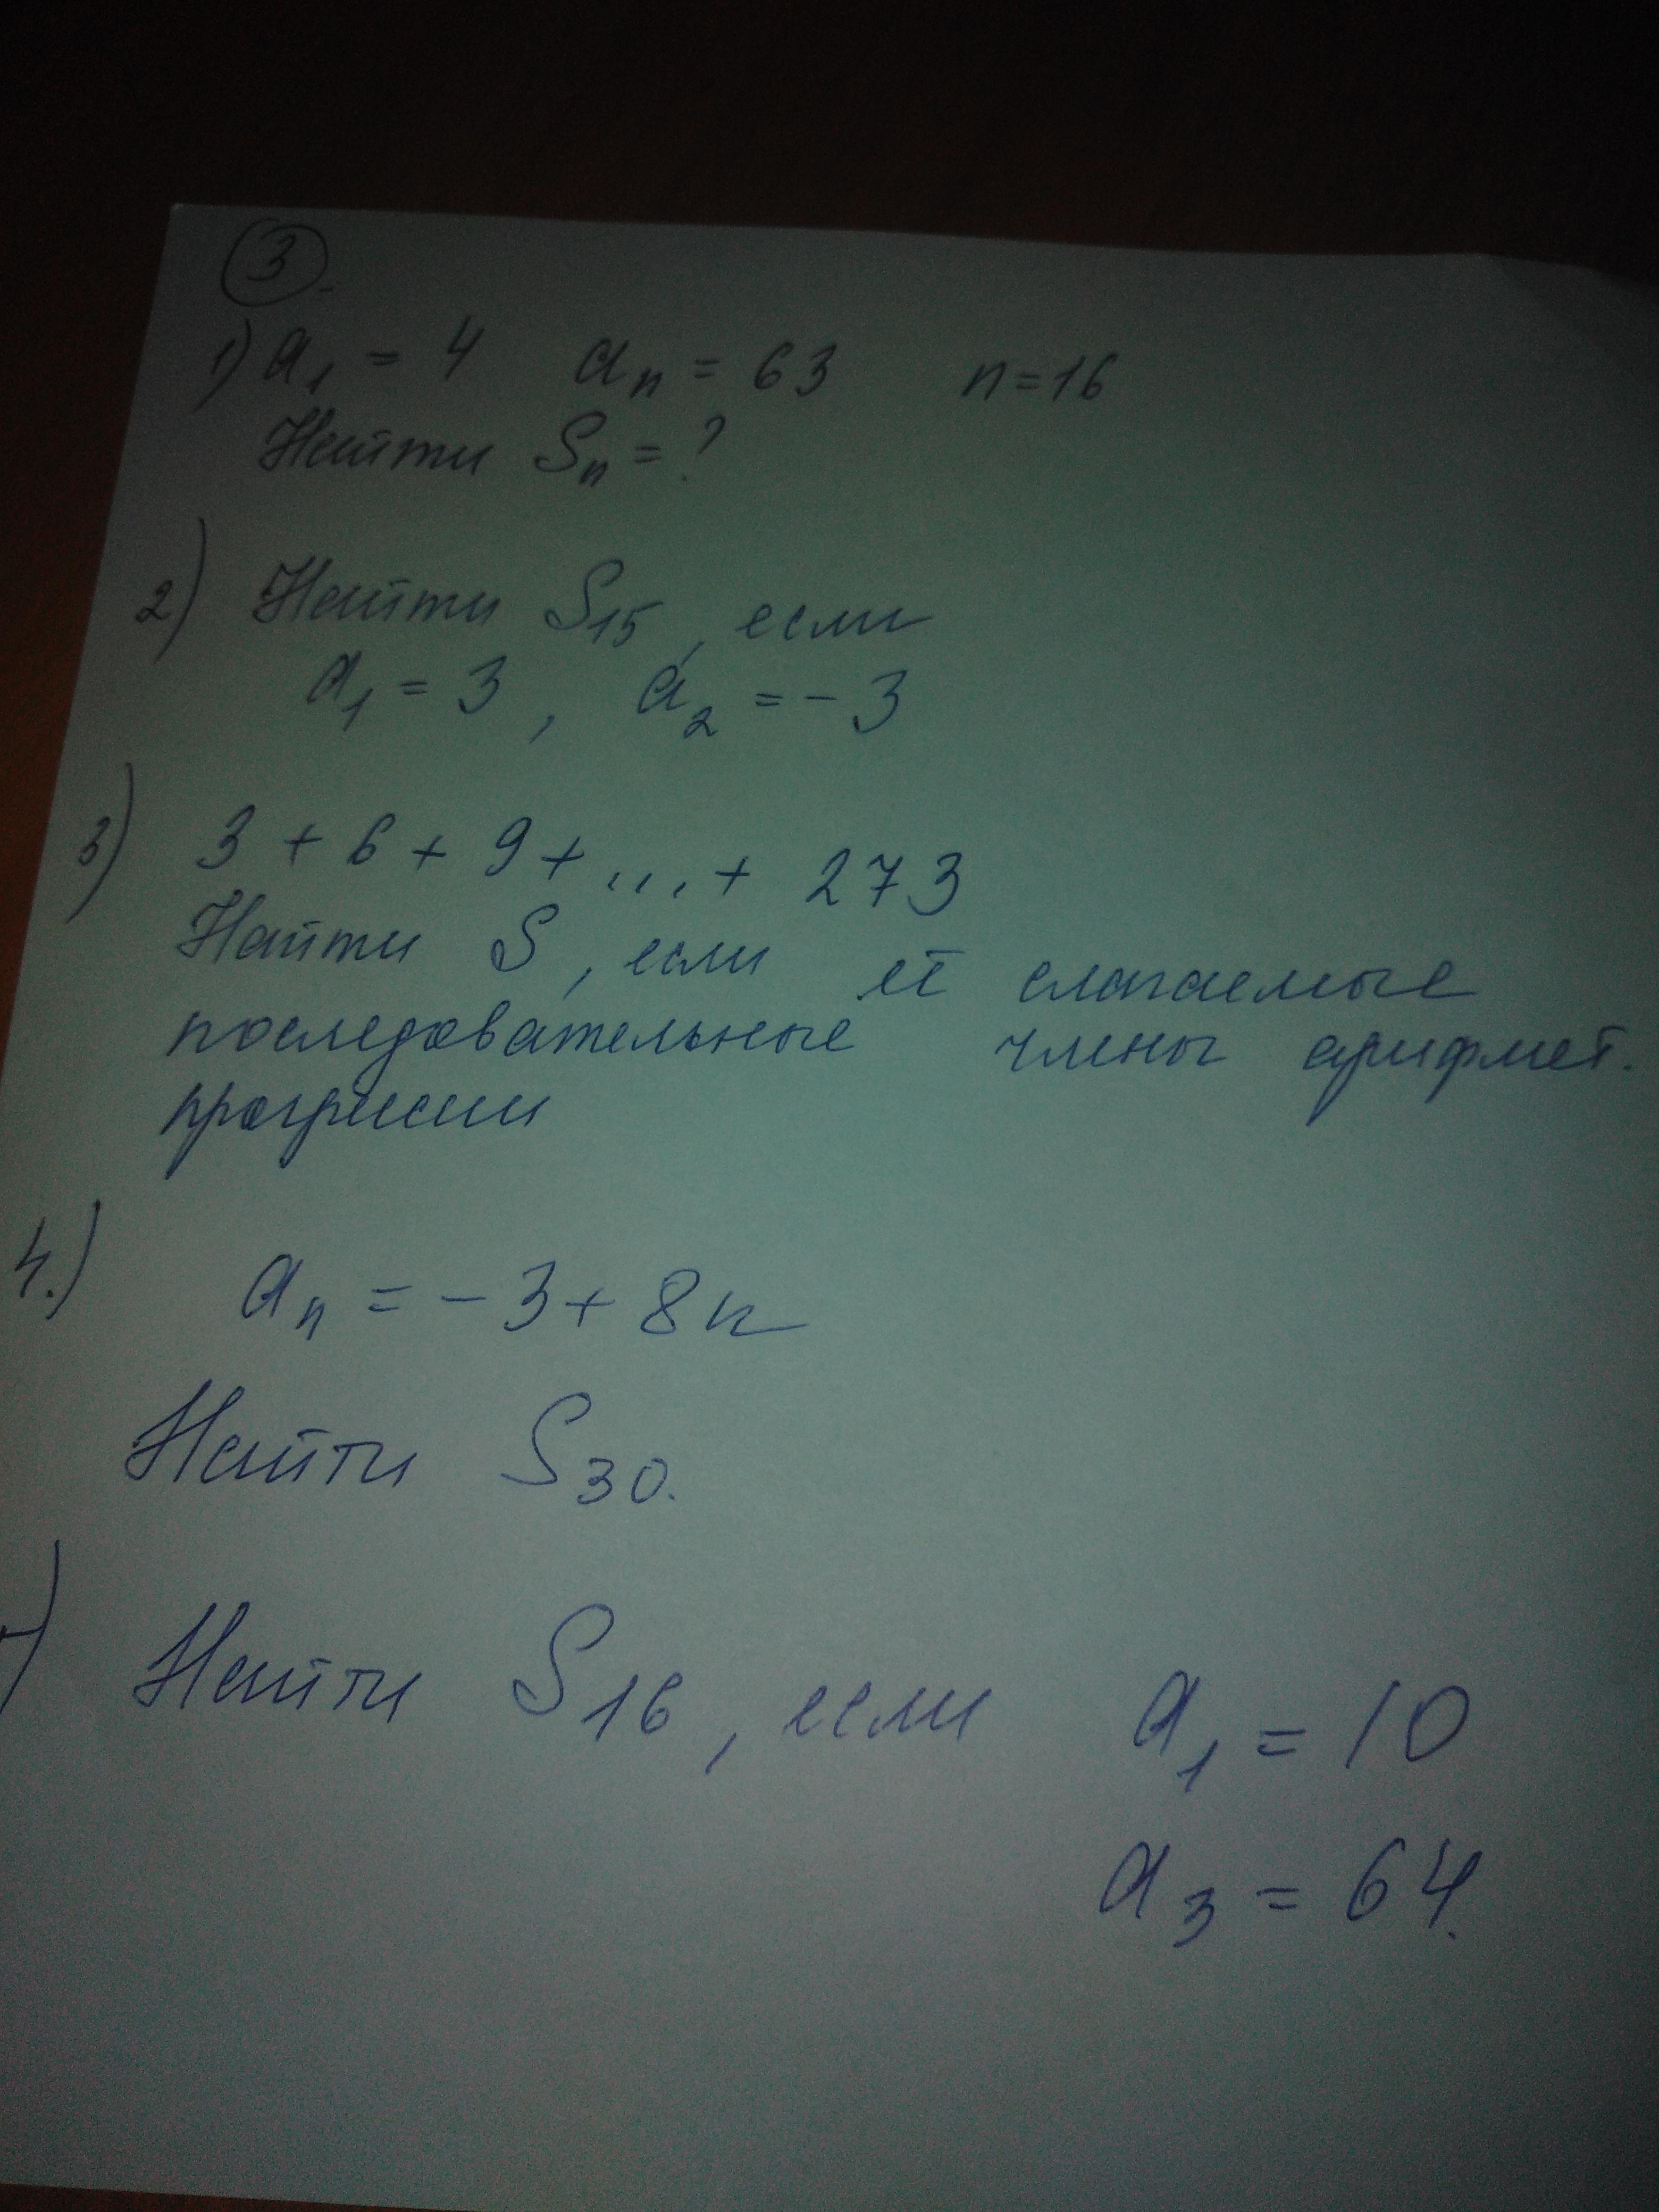 3
1) a₁ = 4 aₙ = 63 n = 16
Найти Sₙ = ?
2) Найти S₁₅, если
a₁ = 3, a₂ = -3
3) 3 + 6 + 9 + ... + 273
Найти S, если её слагаемые
последовательные члены арифмет.
прогрессии
4.) aₙ = -3 + 8n
Найти S₃₀.
) Найти S₁₆, если a₁ = 10
a₃ = 64.